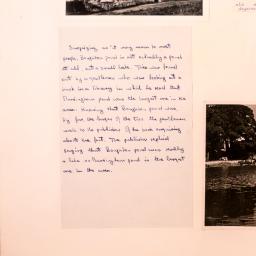 Surprising as it may seem to most
people, Burgham pond is not actually a pond
at all, but a small lake. This was found
out by a gentleman who was looking at a
book in a library in which he read that
pond was the largest one in the
area. Knowing that pond was
by far the larger of the two the gentleman
wrote to the publishers of the book enquiring
about this fact. The publishers replied
saying that pond was really
a lake so pond is the largest
one in the area.